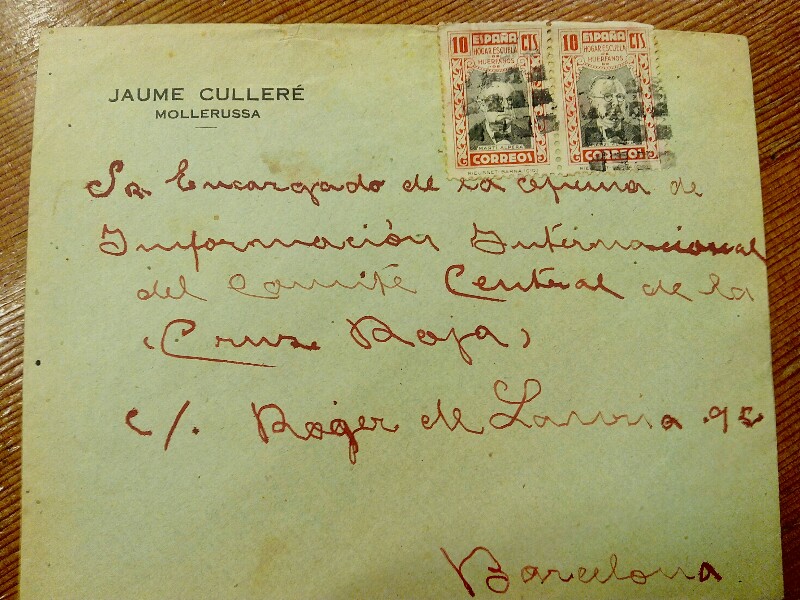 JAUME CULLERÉ
MOLLERUSSA
10 ESPAÑA CTS
HOGAR ESCUELA
DE
HUERFANOS
DE
CORREOS
10 ESPAÑA CTS
HOGAR ESCUELA
DE
HUERFANOS
DE
CORREOS
Sr Encargado de la oficina de
Información Internacional
del Comité Central de la
(Cruz Roja)
c/. Roger de Lauria 95
Barcelona